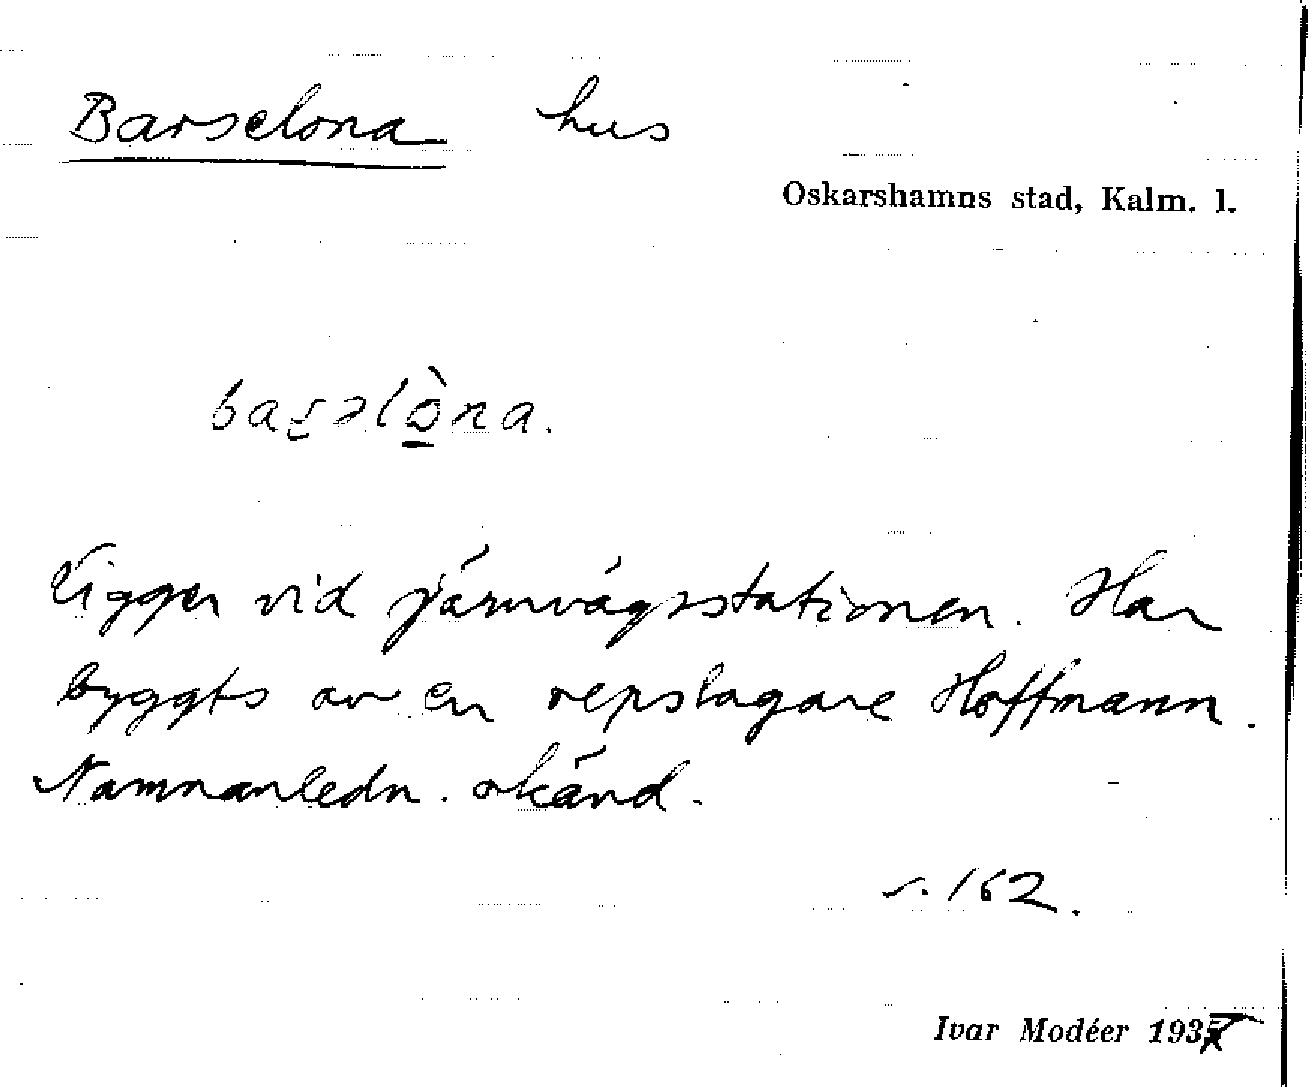 Barselona hus
Oskarshamns stad, Kalm. l.
Ligger vid järnvägsstationen. Har
byggts av en repslagare Hoffmann.
Namnanledn. okänd.
s. 162.
Ivar Modéer 193